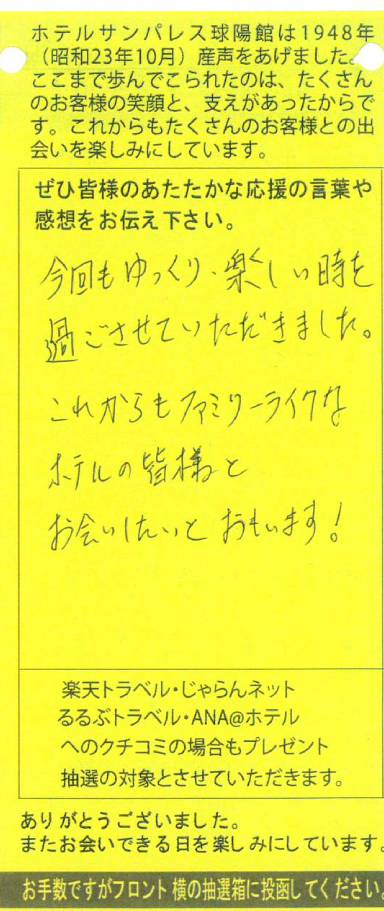 ホテルサンパレス球陽館は1948年
（昭和23年10月）産声をあげました。
ここまで歩んでこられたのは、たくさん
のお客様の笑顔と、支えがあったからで
す。これからもたくさんのお客様との出
会いを楽しみにしています。
ぜひ皆様のあたたかな応援の言葉や
感想をお伝え下さい。
今回もゆっくり、楽しい時を
過ごさせていただきました。
これからもファミリーライクな
ホテルの皆様と
お会いしたいとおもいます！
楽天トラベル・じゃらんネット
るるぶトラベル・ANA@ホテル
へのクチコミの場合もプレゼント
抽選の対象とさせていただきます。
ありがとうございました。
またお会いできる日を楽しみにしています。
お手数ですがフロント横の抽選箱に投函してください。